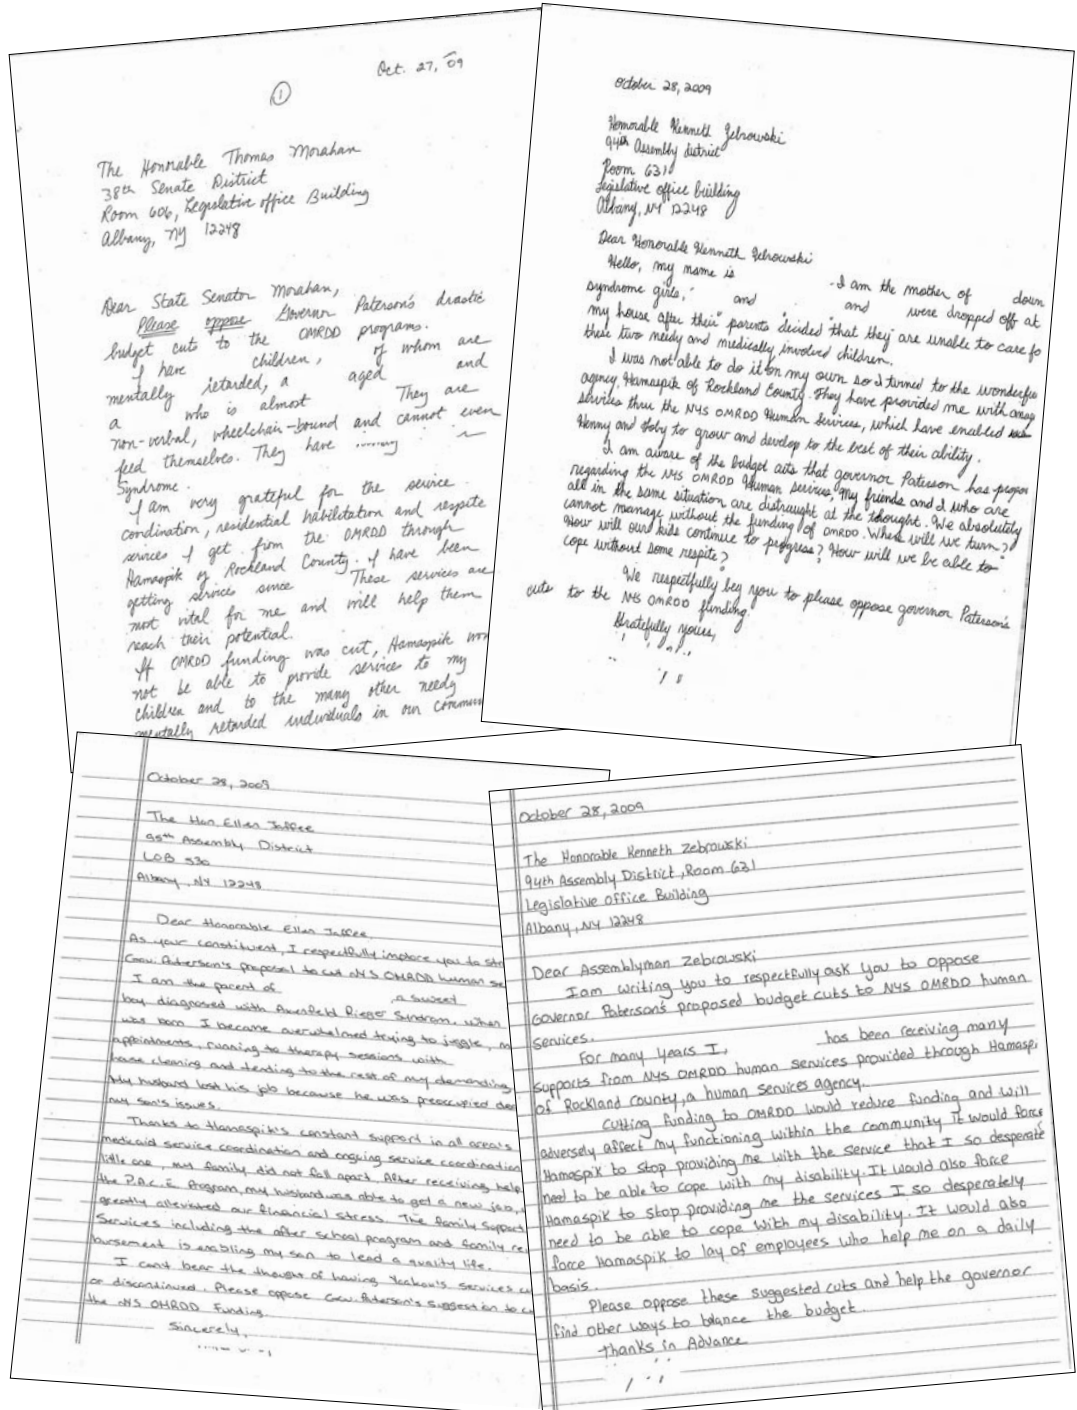 Oct. 27, 09
1
The Honorable Thomas Morahan
38th Senate District
Room 606, Legislative office Building
Albany, NY 12248
Dear State Senator Morahan,
Please oppose Governor Paterson's drastic
budget cuts to the OMRDD programs.
I have children, of whom are
mentally retarded, a aged and
a who is almost They are
non-verbal, wheelchair-bound and cannot even
feed themselves. They have
Syndrome.
I am very grateful for the service
cordination, residential habilitation and respite
services I get from the OMRDD through
Hamaspik of Rockland County. I have been
getting services since These services are
most vital for me and will help them
reach their potential.
If OMRDD funding was cut, Hamaspik wou
not be able to provide services to my
children and to the many other needy
mentally retarded individuals in our commun
October 28, 2009
Honorable Kenneth Zebrowski
94th Assembly district
Room 631
Legislative office building
Albany, NY 12248
Dear Honorable Kenneth Zebrowski
Hello, my name is I am the mother of down
syndrome girls, and and were dropped off at
my house after their parents decided that they are unable to care fo
these two needy and medically involved children.
I was not able to do it on my own so I turned to the wonderful
agency, Hamaspik of Rockland County. They have provided me with
services thru the NYS OMRDD Human Services, which have enabled
Henny and Toby to grow and develop to the best of their ability.
I am aware of the budget cuts that governor Paterson has propos
regarding the NYS OMRDD Human services. My friends and I who are
all in the same situation are distraught at the thought. We absolutely
cannot manage without the funding of OMRDD. Where will we turn?
How will our kids continue to progress? How will we be able to
cope without some respite?
We respectfully beg you to please oppose governor Paterson's
cuts to the NYS OMRDD funding.
Gratefully yours,
October 28, 2009
The Hon. Ellen Jaffee
95th Assembly District
LOB 530
Albany, NY 12248
Dear Honorable Ellen Jaffee,
As your constituent, I respectfully implore you to str
Gov. Paterson's proposal to cut NYS OMRDD human se
I am the parent of , a sweet
boy diagnosed with Axenfeld Rieger Syndrom. When
was born I became overwhelmed trying to juggle, m
appointments, running to therapy sessions with
house cleaning and tending to the rest of my demanding
My husband lost his job because he was preoccupied
my son's issues.
Thanks to Hamaspik's constant support in all area's
medicaid service coordination and ongoing service coordination
little one, my family did not fall apart. After receiving help
the P.A.C.E. Program, my husband was able to get a new job,
greatly alleviated our financial stress. The family support
Services including the after school program and family re
bursement is enabling my son to lead a quality life.
I can't bear the thought of having Yaakov's services
or discontinued. Please oppose Gov. Paterson's suggestion to c
the NYS OMRDD Funding.
Sincerely,
October 28, 2009
The Honorable Kenneth Zebrowski
94th Assembly District, Room 631
Legislative office Building
Albany, NY 12248
Dear Assemblyman Zebrowski
I am writing you to respectfully ask you to oppose
Governor Paterson's proposed budget cuts to NYS OMRDD human
services.
For many years I, has been receiving many
supports from NYS OMRDD human services provided through Hamaspi
of Rockland County, a human services agency.
Cutting funding to OMRDD would reduce funding and will
adversely affect my functioning within the community It would force
Hamaspik to stop providing me with the service that I so desperate
need to be able to cope with my disability. It would also force
Hamaspik to stop providing me the services I so desperately
need to be able to cope with my disability. It would also
force Hamaspik to lay of employees who help me on a daily
basis.
Please oppose these suggested cuts and help the governor
find other ways to balance the budget.
Thanks in Advance